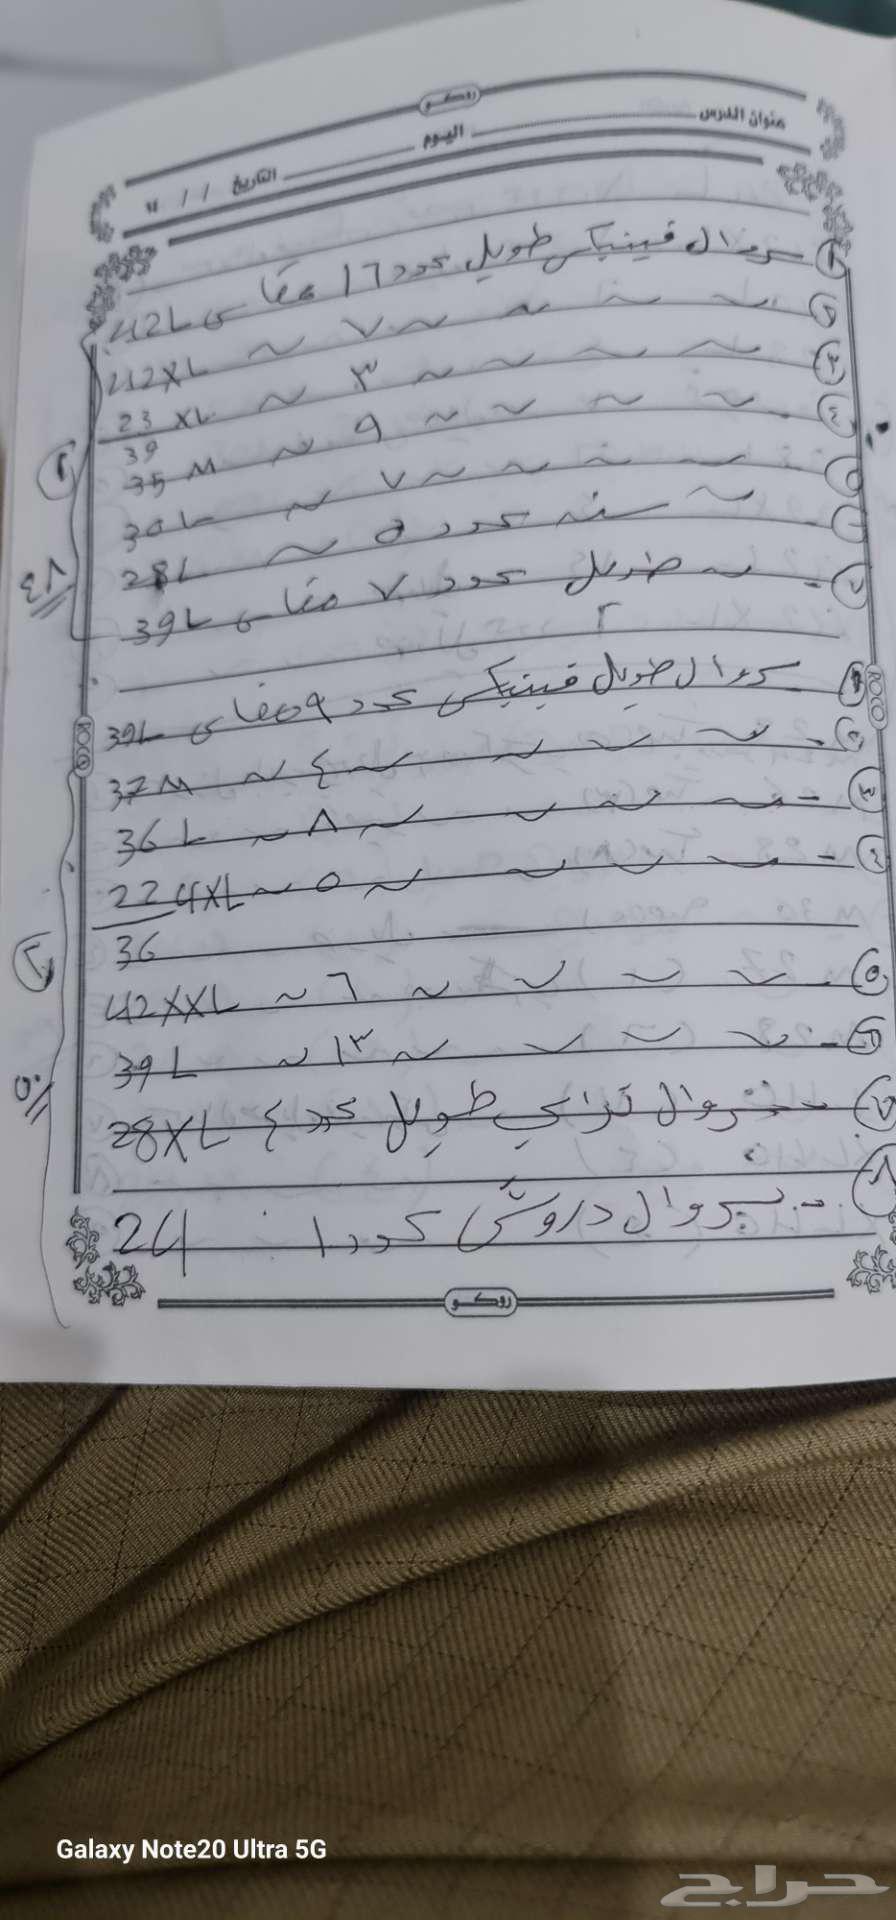 روكو
عنوان الدرس اليوم التاريخ / / ١٤
١ سروال فينيكس طويل عدد ١٦ مقاس 42L
٢ ~ ~ ~ ~ ٧ ~ 42XL
٣ ~ ~ ~ ~ ٣ ~ 23 XL
39
٤ ~ ~ ~ ~ ٩ ~ 35 M
٥ ~ ~ ~ ~ ٧ ~ 30L
٦ ~ عدد ٥ ~ 28L
٧ ~ طويل عدد ٧ مقاس 39L
١
٤٨
٢
١ سروال طويل فينيكس عدد ٩ مقاس 39L
٢ ~ ~ ~ ~ ٤ ~ 37 M
٣ ~ ~ ~ ~ ٨ ~ 36 L
٤ ~ ~ ~ ~ ٥ ~ 22 4XL
36
٥ ~ ~ ~ ~ ٦ ~ 42XXL
٦ ~ ~ ~ ~ ١٣ ~ 39 L
٧ سروال تراكي طويل عدد ٤ 28XL
٨ سروال دروش عدد ١ 24
٢
٥٠
ROCO
ROCO
روكو
Galaxy Note20 Ultra 5G
حراج